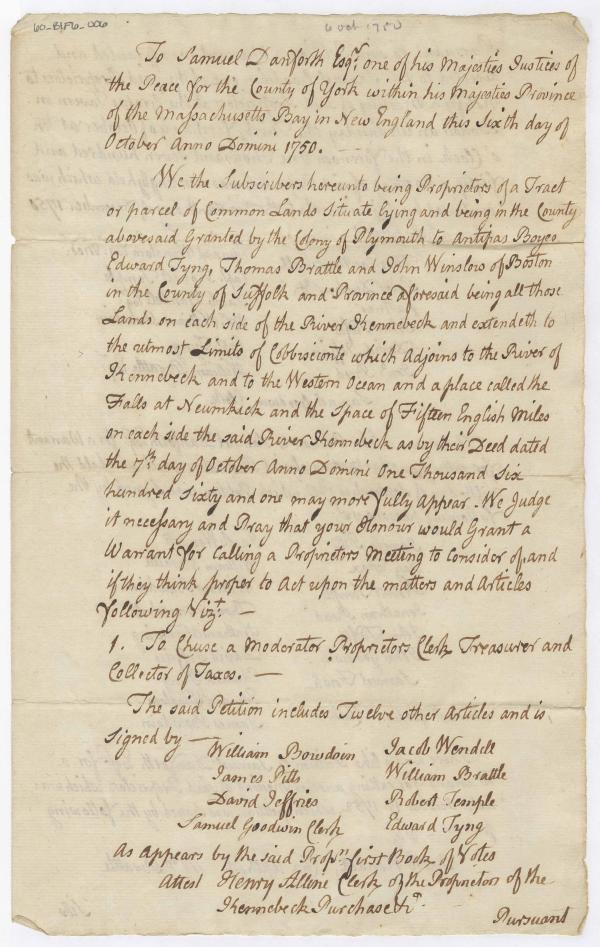 60-BIF6-006
6 Oct 1750
To Samuel Danforth Esqr. one of his Majesties Justices of
the Peace for the County of York within his Majesties Province
of the Massachusetts Bay in New England this Sixth day of
October Anno Domini 1750.
We the Subscribers hereunto being Proprietors of a Tract
or parcel of Common Lands Situate Lying and being in the County
abovesaid Granted by the Colony of Plymouth to Antipas Boyes
Edward Tyng, Thomas Brattle and John Winslow of Boston
in the County of Suffolk and Province aforesaid being all those
Lands on each side of the River Kennebeck and extendeth to
the utmost Limits of Cobbiseconte which Adjoins to the River of
Kennebeck and to the Western Ocean and a place called the
Falls at Neumkick and the Space of Fifteen English Miles
on each side the said River Kennebeck as by their Deed dated
the 7th. day of October Anno Domini One Thousand Six
hundred Sixty and one may more fully Appear. We Judge
it necessary and Pray that your Honour would Grant a
Warrant for Calling a Proprietors Meeting to Consider of, and
if they think proper to Act upon the matters and Articles
following Vizt. —
1. To Chuse a Moderator Proprietors Clerk Treasurer and
Collector of Taxes. —
The said Petition includes Twelve other Articles and is
Signed by —
William Bowdoin Jacob Wendell
James Pitts William Brattle
David Jeffries Robert Temple
Samuel Goodwin Clerk Edward Tyng
As Appears by the said Proprs. first Book of Votes
Attest Henry Alline Clerk of the Proprietors of the
Kennebeck Purchase &ca.
Pursuant